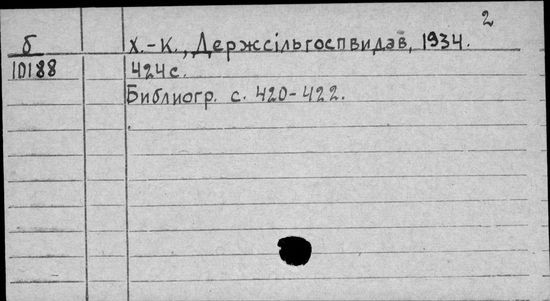 2
б Х.-К., Держсільгоспвидав, 1934.
10188 424 с.
Библиогр. с. 420-422.